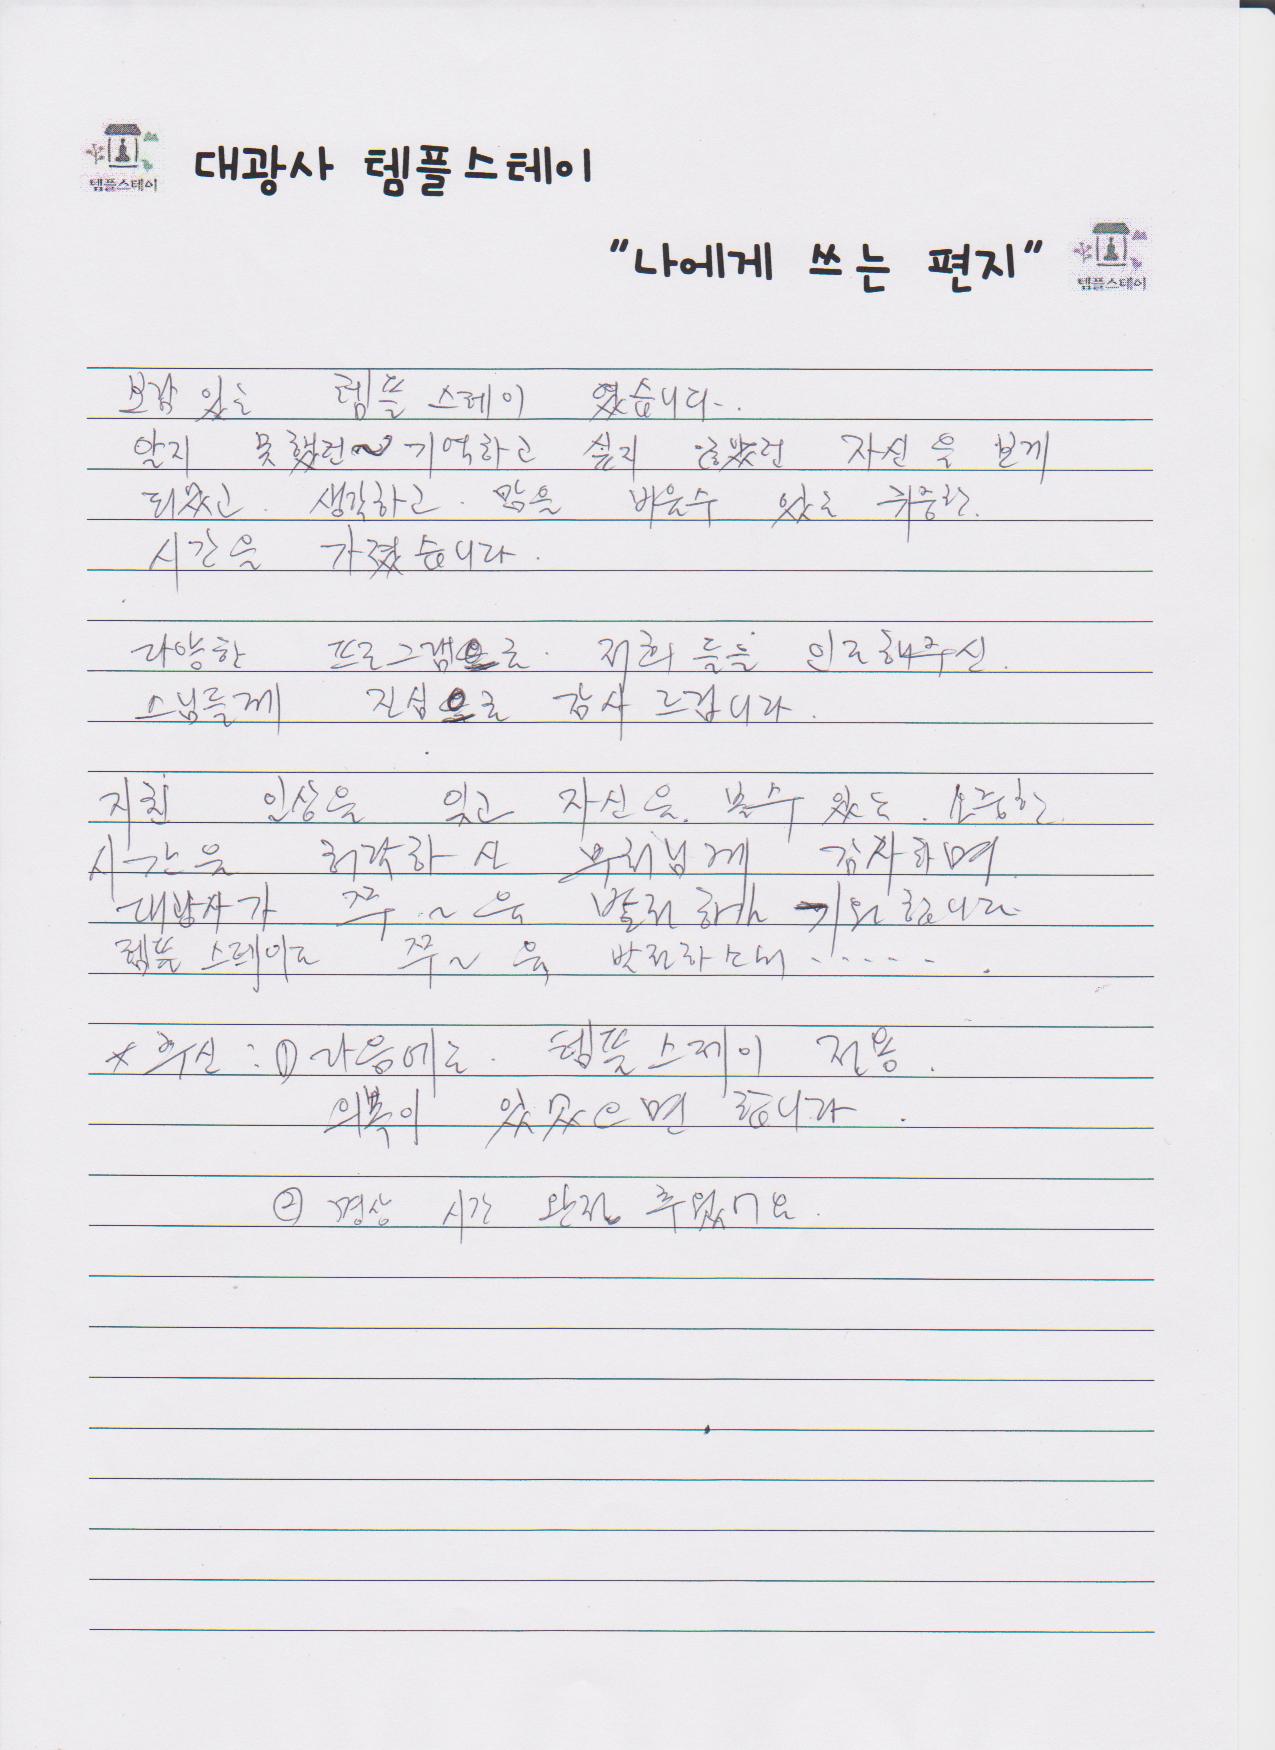 템플스테이
대광사 템플스테이
"나에게 쓰는 편지"
템플스테이
보람 있는 템플 스테이 였습니다.
알지 못했던~ 기억하고 싶지 않았던 자신을 보게
되었고. 생각하고. 맘을 비울수 있는 귀중한.
시간을 가졌습니다.
다양한 프로그램으로. 저희들을 인도해주신.
스님들께 진심으로 감사 드립니다.
지친 인상을 잊고 자신을. 볼수 있는. 소중한
시간을 허락하신 부처님께 감사하며
대광사가 쭈~욱 발전하길 기원합니다.
템플 스테이도 쭈~욱 발전하소서......
* 추신 : ① 다음에는. 템플스테이 전용.
의복이 있었으면 합니다.
② 명상 시간 완전 추웠어요.